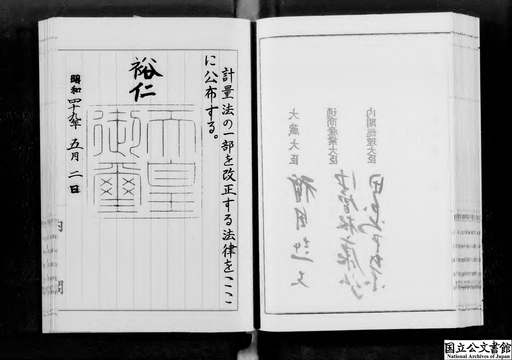 計量法の一部を改正する法律をここ
に公布する。
裕仁
昭和四十九年 五月 二日
天皇
御璽
内閣
内閣総理大臣
通商産業大臣
大蔵大臣
国立公文書館
National Archives of Japan